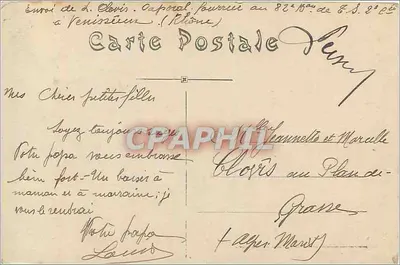 Envoi de L. Clovis. Caporal fourrier au 82e Bon de T. S. 2e Cie
à Venissieux (Rhône)
Carte Postale
Mes Chères petites filles
Soyez toujours
Votre papa vous embrasse
bien fort - Un baiser à
maman et à marraine; je
vous le rendrai
Votre papa
Louis
CPAPHIL
Mlles Jeannette et Marcelle
au Plan de
Grasse
(Alpes Marit)